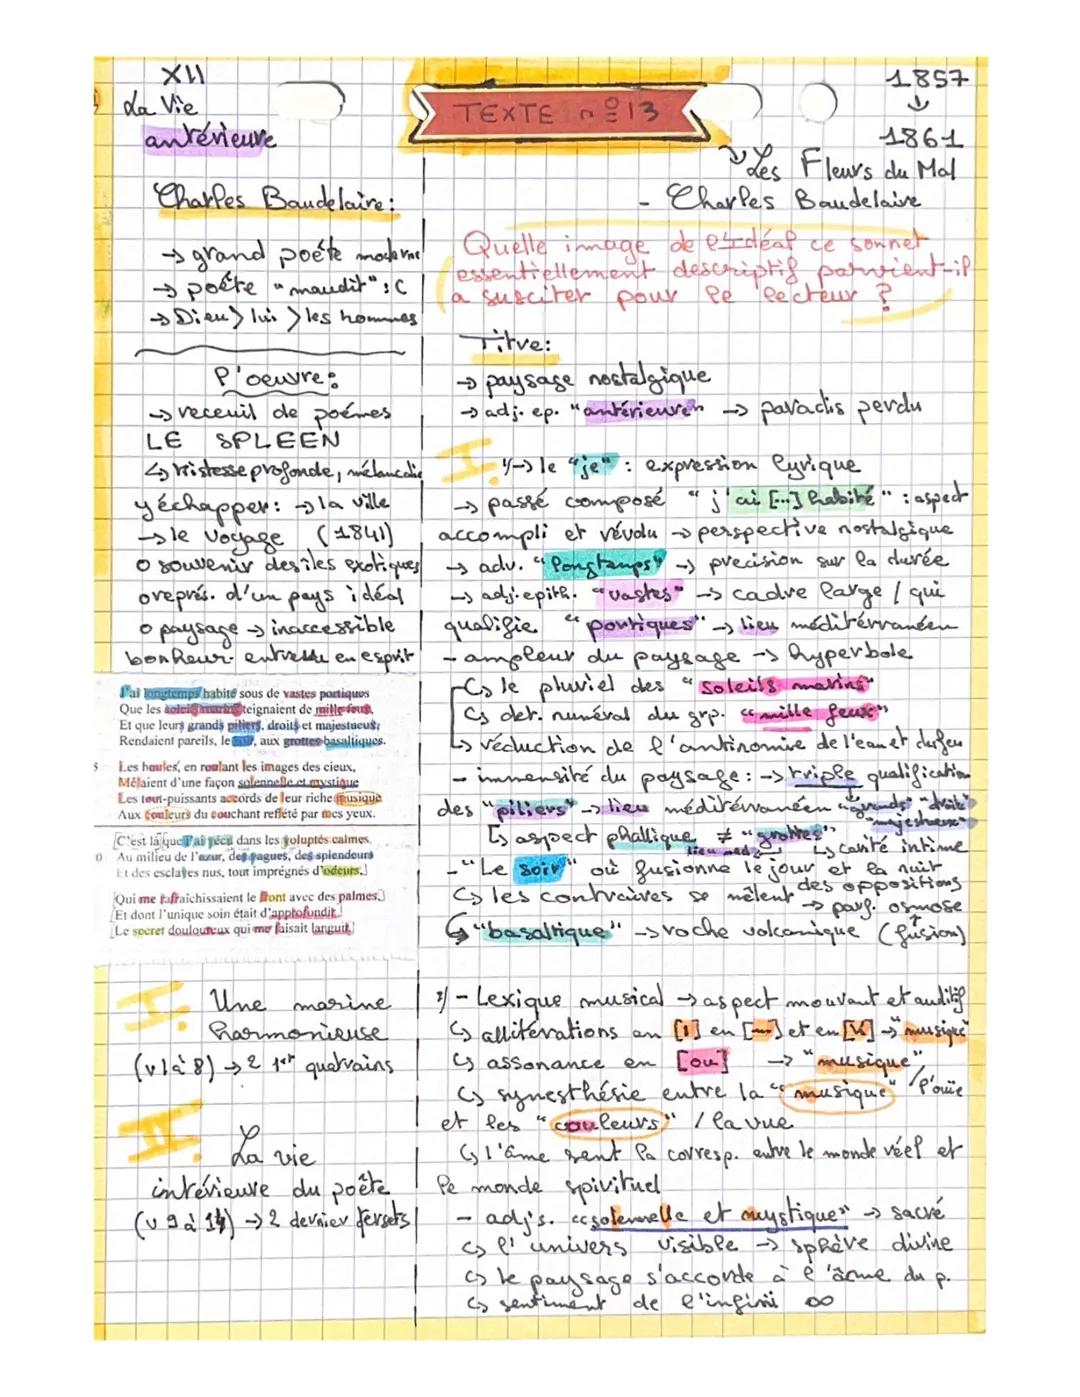 XII
La Vie
antérieure
TEXTE n°13
1857
↓
1861
Les Fleurs du Mal
- Charles Baudelaire
Charles Baudelaire:
→ grand poéte moderne
→ poête "maudit" : C
→ Dieu > lui > les hommes
l'oeuvre:
→ receuil de poémes
LE SPLEEN
↳ tristesse profonde, mélancolie
y échapper: → la ville
→ le voyage (1841)
o souvenir des iles exotiques
o représ. d'un pays idéal
o paysage → inaccessible
bonheur entrevu en esprit
J'ai longtemps habité sous de vastes portiques
Que les soleils marins teignaient de mille feux,
Et que leurs grands piliers, droits et majestueux,
Rendaient pareils, le soir, aux grottes basaltiques.
5 Les houles, en roulant les images des cieux,
Mêlaient d'une façon solennelle et mystique
Les tout-puissants accords de leur riche musique
Aux couleurs du couchant reflété par mes yeux.
C'est là que j'ai vécu dans les voluptés calmes,
0 Au milieu de l'azur, des vagues, des splendeurs
Et des esclaves nus, tout imprégnés d'odeurs,
Qui me rafraîchissaient le front avec des palmes,
Et dont l'unique soin était d'approfondir
Le secret douloureux qui me faisait languir.
I. Une marine
harmonieuse
(v1à8) → 2 1er quatrains
II.
La vie
intérieure du poête
(v9à14) → 2 dernier tersets
Quelle image de l'Idéal ce sonnet
essentiellement descriptif parvient-il
a susciter pour le lecteur ?
Titre:
→ paysage nostalgique
→ adj. ep. "antérieure" → paradis perdu
I. 1/→ le "je" : expression lyrique
→ passé composé "j'ai [...] habité" : aspect
accompli et révolu → perspective nostalgique
→ adv. "longtemps" → precision sur la durée
→ adj. epith. "vastes" → cadre large / qui
qualifie "portiques" → lieu méditérranéen
- ampleur du paysage → hyperbole
↳ le pluriel des "soleils marins"
↳ det. numéral du grp. "mille feux"
↳ réduction de l'antinomie de l'eau et du feu
- immensité du paysage : → triple qualification
des "piliers" → lieu méditérranéen "grands" "droits"
"majestueux"
↳ aspect phallique ≠ "grottes"
lieu med ↳ cavité intime
- "Le soir" où fusionne le jour et la nuit
↳ les contraires se mêlent → des oppositions
parf. osmose
↳ "basaltique" → roche volcanique (fusion)
2/ - Lexique musical → aspect mouvant et auditif
↳ allitérations en [l] en [m] et en [k] → "musique"
↳ assonance en [ou] → "musique"
↳ synesthésie entre la "musique" / l'ouïe
et les "couleurs" / la vue
↳ l'âme sent la corresp. entre le monde réel et
le monde spirituel
- adj's. "solennelle et mystique" → sacré
↳ l'univers visible → sphère divine
↳ le paysage s'accorde à l'âme du p.
↳ sentiment de l'infini ∞